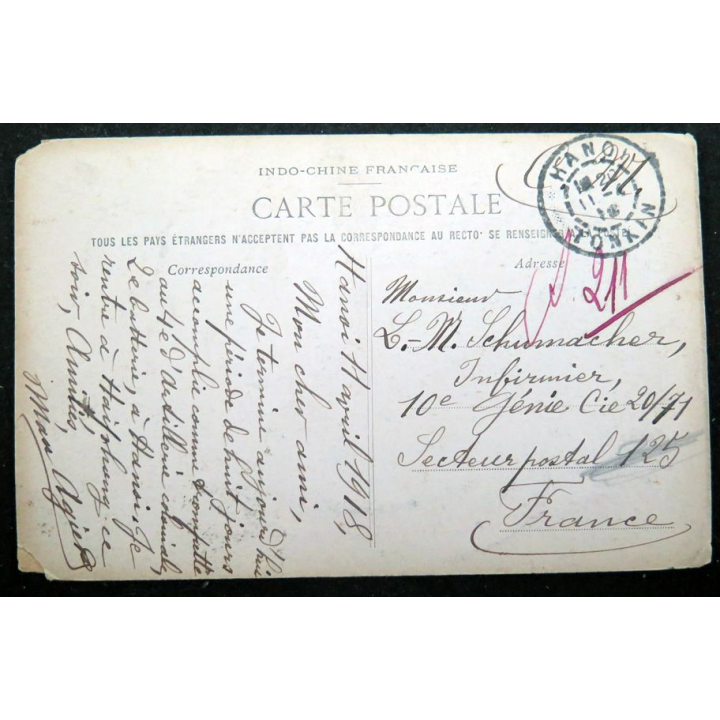 INDO-CHINE FRANÇAISE
CARTE POSTALE
TOUS LES PAYS ÉTRANGERS N'ACCEPTENT PAS LA CORRESPONDANCE AU RECTO· SE RENSEIGNER A LA
Correspondance
Adresse
HANOI
TONKIN
211
Hanoi 11 avril 1918,
Mon cher ami,
Je termine aujourd'hui
une période de huit jours
accomplie comme trompette
au 4e d'Artillerie coloniale,
2e batterie, à Hanoi. Je
rentre à Haïphong ce
soir, Amitiés,
Max Agier
Monsieur
L.-M. Schumacher,
Infirmier,
10e Génie Cie 20/71
Secteur postal 125
France